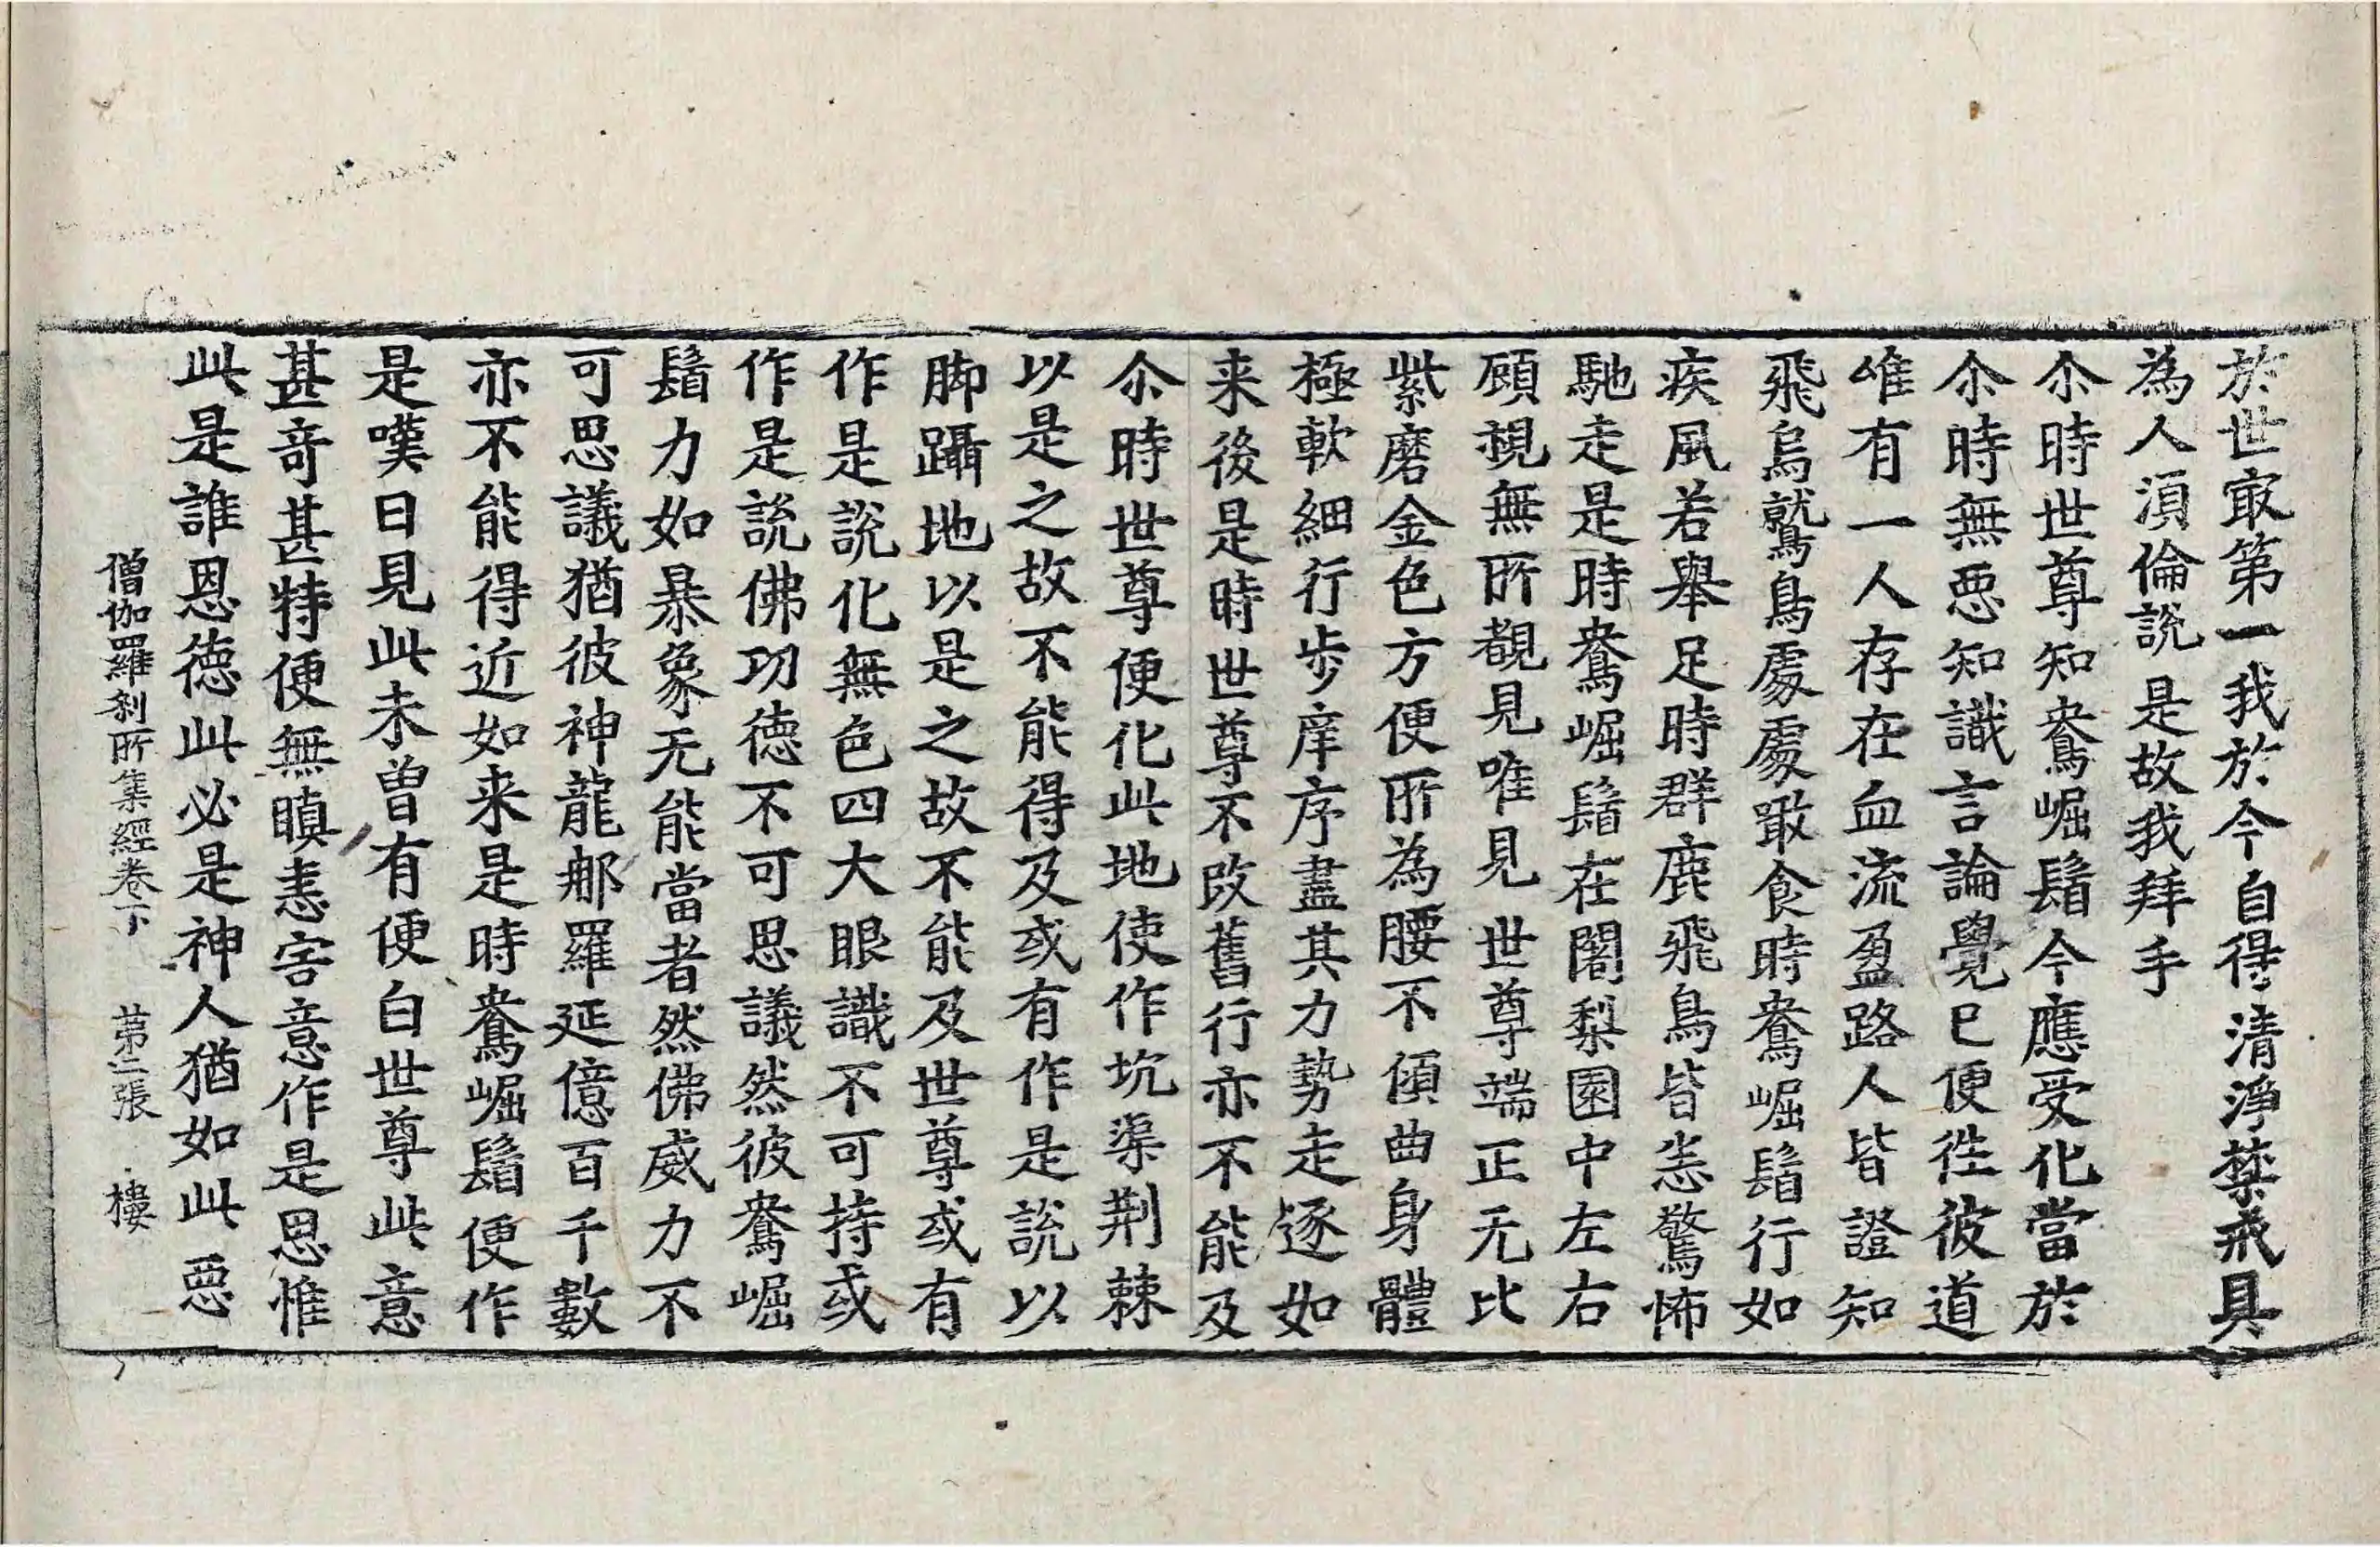 於世㝡第一我於今自得清淨禁戒具
為人湏倫說是故我拜手
尒時世尊知鴦崛鬘今應受化當於
尒時無惡知識言論覺已便徃彼道
唯有一人存在血流盈路人皆證知
飛鳥鷲鳥處處噉食時鴦崛鬘行如
疾風若舉足時群鹿飛鳥皆恙驚怖
馳走是時鴦崛鬘在闍梨園中左右
顧視無所覩見唯見世尊端正无比
紫磨金色方便所為腰不傾曲身體
極軟細行步庠序盡其力勢走逐如
来後是時世尊不改舊行亦不能及
尒時世尊便化此地使作坑渠荆棘
以是之故不能得及或有作是說以
脚躡地以是之故不能及世尊或有
作是說化無色四大眼識不可持或
作是說佛功德不可思議然彼鴦崛
鬘力如暴象无能當者然佛威力不
可思議猶彼神龍郍羅延億百千數
亦不能得近如来是時鴦崛鬘便作
是嘆曰見此未曾有便白世尊此意
甚竒甚特便無瞋恚害意作是思惟
此是誰恩德此必是神人猶如此惡
僧伽羅刹所集經卷下　第二張　樓